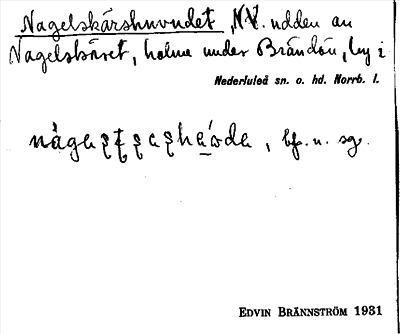 Nagelskärshuvudet, N.V. udden av
Nagelskäret, holme under Brändön, by i
Nederluleå sn. o. hd. Norrb. l.
bf. n. sg.
EDVIN BRÄNNSTRÖM 1931